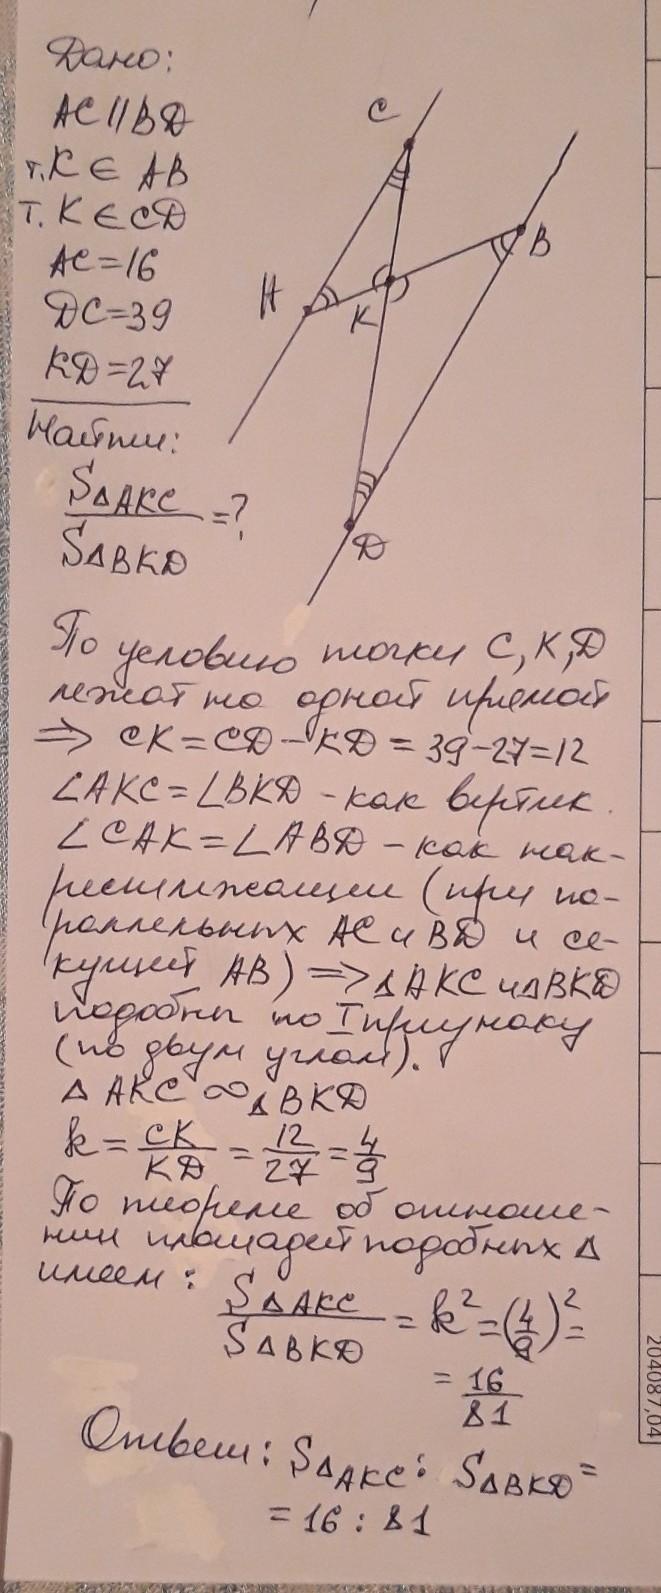 Дано:
AC || BD
т. K ∈ AB
т. K ∈ CD
AC = 16
DC = 39
KD = 27
Найти:
S△AKC / S△BKD = ?
C
B
A
K
D
По условию точки C, K, D
лежат на одной прямой
⇒ CK = CD - KD = 39 - 27 = 12
∠AKC = ∠BKD - как вертик.
∠CAK = ∠ABD - как нак-
рестлежащии (при па-
раллельных AC и BD и се-
кущей AB) ⇒ △AKC и △BKD
подобны по I признаку
(по двум углам).
△ AKC ∞ △BKD
k = CK/KD = 12/27 = 4/9
По теореме об отноше-
нии площадей подобных △
имеем:
S△AKC / S△BKD = k² = (4/9)² =
= 16/81
Ответ: S△AKC : S△BKD =
= 16 : 81
204087,04